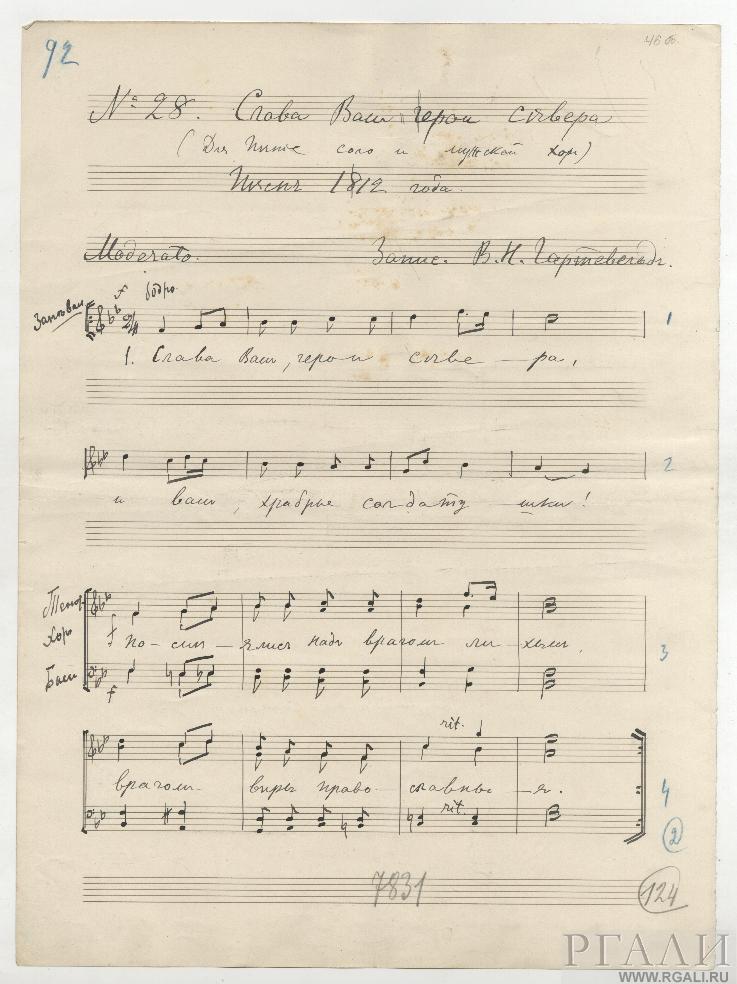 92
46 об.
№ 28. Слава Вам герои сѣвера
(Для Пѣнiе соло и мужской хор)
Пѣснь 1812 года.
Moderato. Запис. В. Н. Гартевельдъ.
Запѣвал бодро
2/4
1
1. Слава Вам, герои сѣве - ра,
2
и вам, храбрые сол-дату шки!
Тенор
Хоръ
f
по - смѣ - ялись надъ врагом ли - хим,
3
Басы
f
rit.
врагом вѣры право славны - я.
rit.
4
2
7831
124
РГАЛИ
WWW.RGALI.RU